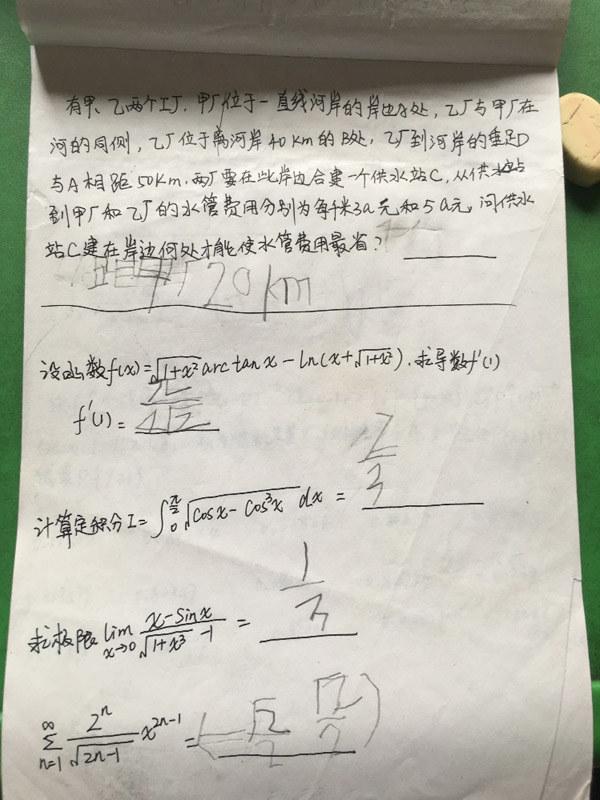 有甲、乙两个工厂,甲厂位于一直线河岸的岸边A处,乙厂与甲厂在
河的同侧,乙厂位于离河岸40km的B处,乙厂到河岸的垂足D
与A相距50km,两厂要在此岸边合建一个供水站C,从供水站
到甲厂和乙厂的水管费用分别为每千米3a元和5a元,问供水
站C建在岸边何处才能使水管费用最省?
距甲厂20km
设函数f(x)=√(1+x²) arc tan x − ln(x+√(1+x²)),求导数f'(1)
f'(1)= π/(2√2)
计算定积分I=∫₀^(π/2) √(cosx−cos³x) dx = 2/3
求极限 lim x→0 (x−sinx)/(√(1+x³) −1) = 1/3
∞∑n=1 2ⁿ/√(2n−1) x²ⁿ⁻¹ = (−√2/2 √2/2)